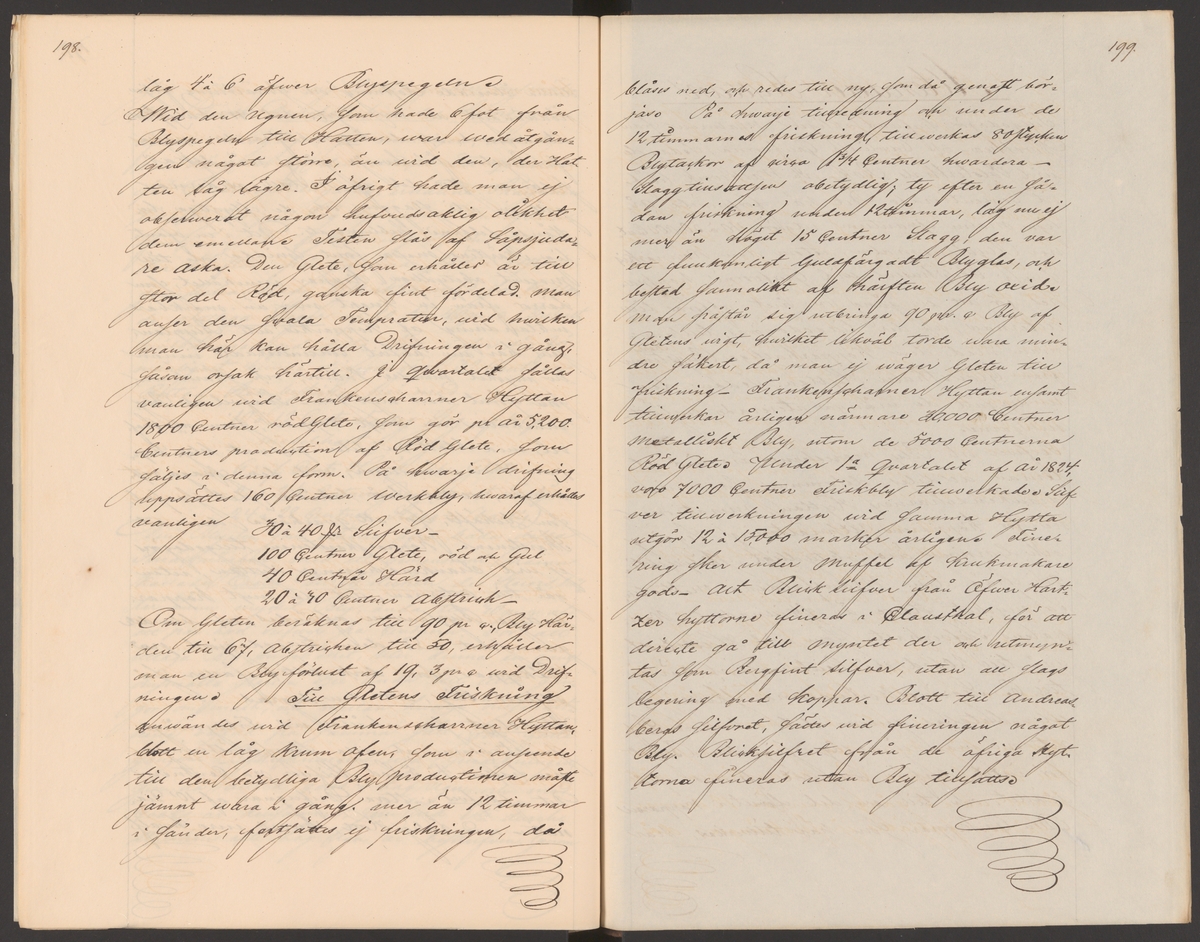 198.
låg 4 à 6' öfwer Blyspegeln.
Wid den ugnen, som hade 6 fot från
Blyspegeln till Hatten, war wedåtgån-
gen något större, än wid den, der Hat-
ten låg lägre. I öfrigt hade man ej
observerat någon hufvudsaklig olikhet
dem emellan. Testen slås af Såpsjuda-
re aska. Den Glete, som erhålles är till
stor del Röd, ganska fint fördelad. man
anser den svala Tempratur, wid hvilken
man här kan hålla Drifningen i gång,
såsom orsak härtill. I Qvartalet fällas
vanligen wid Frankenscharrner Hyttan
1800 Centner röd Glete, som gör pr år 5,200
Centners production af Röd Glete, som
säljes i denna form. På hwarje drifning
uppsättes 160 Centner Werkbly, hwaraf erhålles
vanligen
30 à 40 Silfver –
100 Centner Glete, röd och Gul
40 Centner Härd
20 à 40 Centner Abstrich –
Om Gleten beräknas till 90 pr c. Bly Här-
den till 67, abstrichen till 50, erhåller
man en Blyförlust af 19,3 pr c wid Drif-
ningen. Till Gletens Friskning
användes wid Frankenscharrner Hyttan,
blott en låg Krum ofen, som i anseende
till den betydliga Bly productionen måste
jämnt wara i gång. mer än 12 timmar
i sänder, fortsättes ej friskningen, då
199.
blåses ned, och redes till ny, som då genast bör-
jas. På hwarje tillredning och under de
12 timmarnes friskning, tillwerkas 80 stycken
Blytackor af cirka 1 3/4 Centner hwardera –
Slaggtillsattsen obetydlig; ty efter en så-
dan friskning under 12 timmar, låg nu ej
mer än högst 15 Centner Slagg, den var
ett fullkomligt Guldfärgadt Blyglas, och
bestod sannolikt af hälften Bly oxid.
man påstår sig utbringa 90 pr. c Bly af
Gletens vigt, hvilket likväl torde wara min-
dre säkert, då man ej wäger Gleten till
friskning – Frankenscharrner Hyttan ensamt
tillwerkar årligen närmare 20,000 Centner
Metalliskt Bly, utom de 5000 Centnerna
Röd Glete. Under 1a Qvartalet af år 1824,
voro 7000 Centner Friskbly tillwerkade. Silf-
ver tillwerkningen wid samma Hytta
utgör 12 à 15000 marker årligen. Fine-
ring sker under muffel af Krukmakare
gods – Alt Blicksilfver från Öfwer Hart-
zer hyttorne fineras i Clausthal, för att
direkte gå till myntet der och utmyn-
tas som Bergfint silfver, utan all slags
legering med Koppar. Blott till Andreas-
bergs silfvret, sådes wid fineringen något
Bly. Blicksilfret från de öfriga Hyt-
torna fineras utan Bly tillsatts.